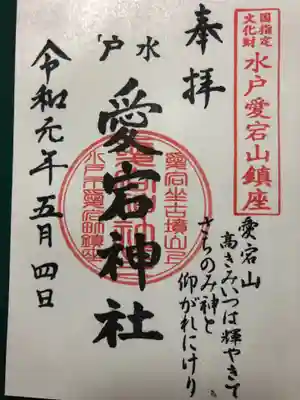 国指定
文化財
水戸愛宕山鎮座
奉拝
愛宕山
高きみいつは輝やきて
さちのみ神と
仰がれにけり
水戸
愛宕神社
愛宕坐古墳山上
水戸市愛宕町鎮座
令和元年五月四日